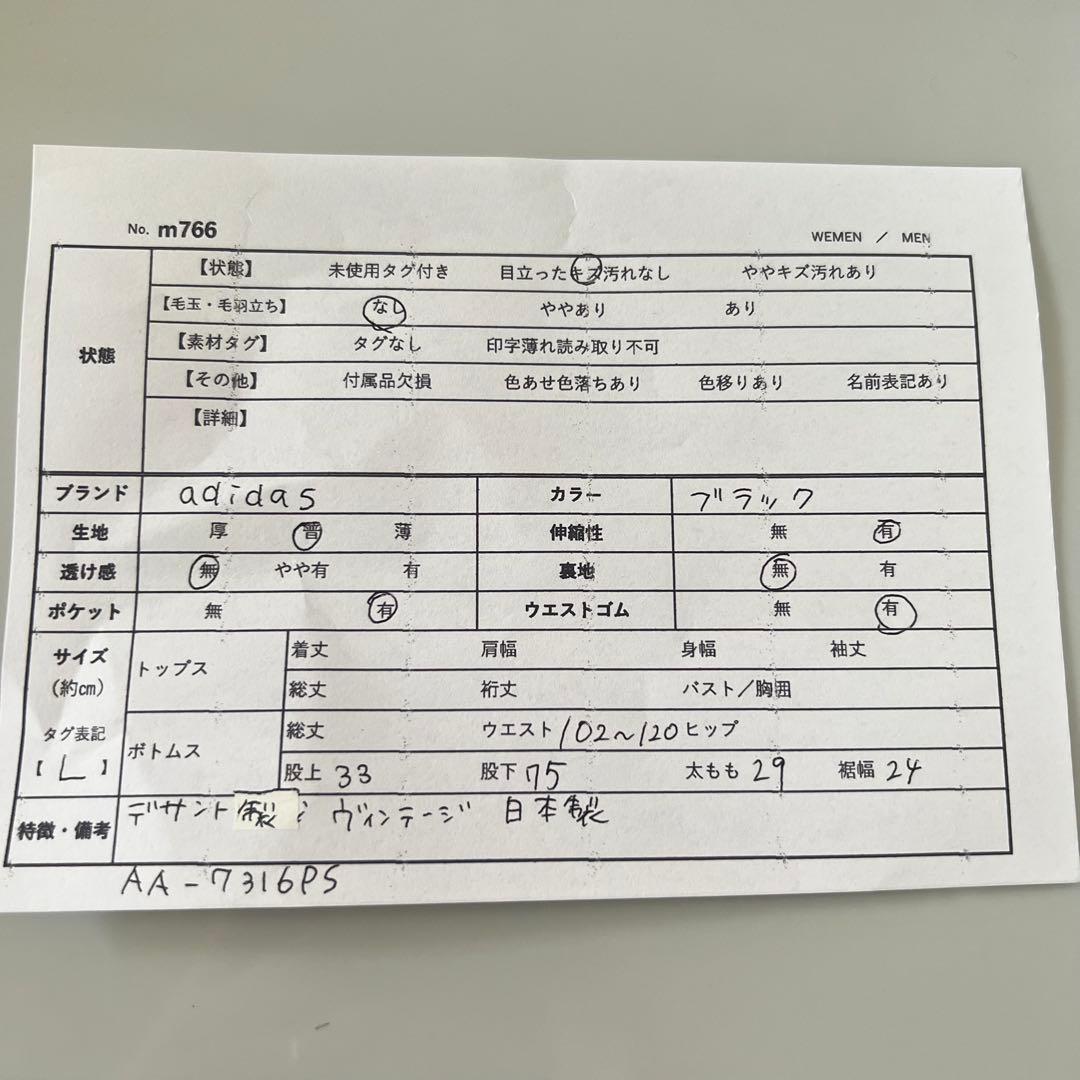 No. m766
WEMEN / MEN
状態
【状態】 未使用タグ付き 目立ったキズ汚れなし ややキズ汚れあり
【毛玉・毛羽立ち】 なし ややあり あり
【素材タグ】 タグなし 印字薄れ読み取り不可
【その他】 付属品欠損 色あせ色落ちあり 色移りあり 名前表記あり
【詳細】
ブランド adidas カラー ブラック
生地 厚 普 薄 伸縮性 無 有
透け感 無 やや有 有 裏地 無 有
ポケット 無 有 ウエストゴム 無 有
サイズ
(約㎝)
タグ表記
【 L 】
トップス
着丈 肩幅 身幅 袖丈
総丈 裄丈 バスト/胸囲
ボトムス
総丈 ウエスト 102~120 ヒップ
股上 33 股下 75 太もも 29 裾幅 24
特徴・備考 デサント製 ヴィンテージ 日本製
AA-7316PS